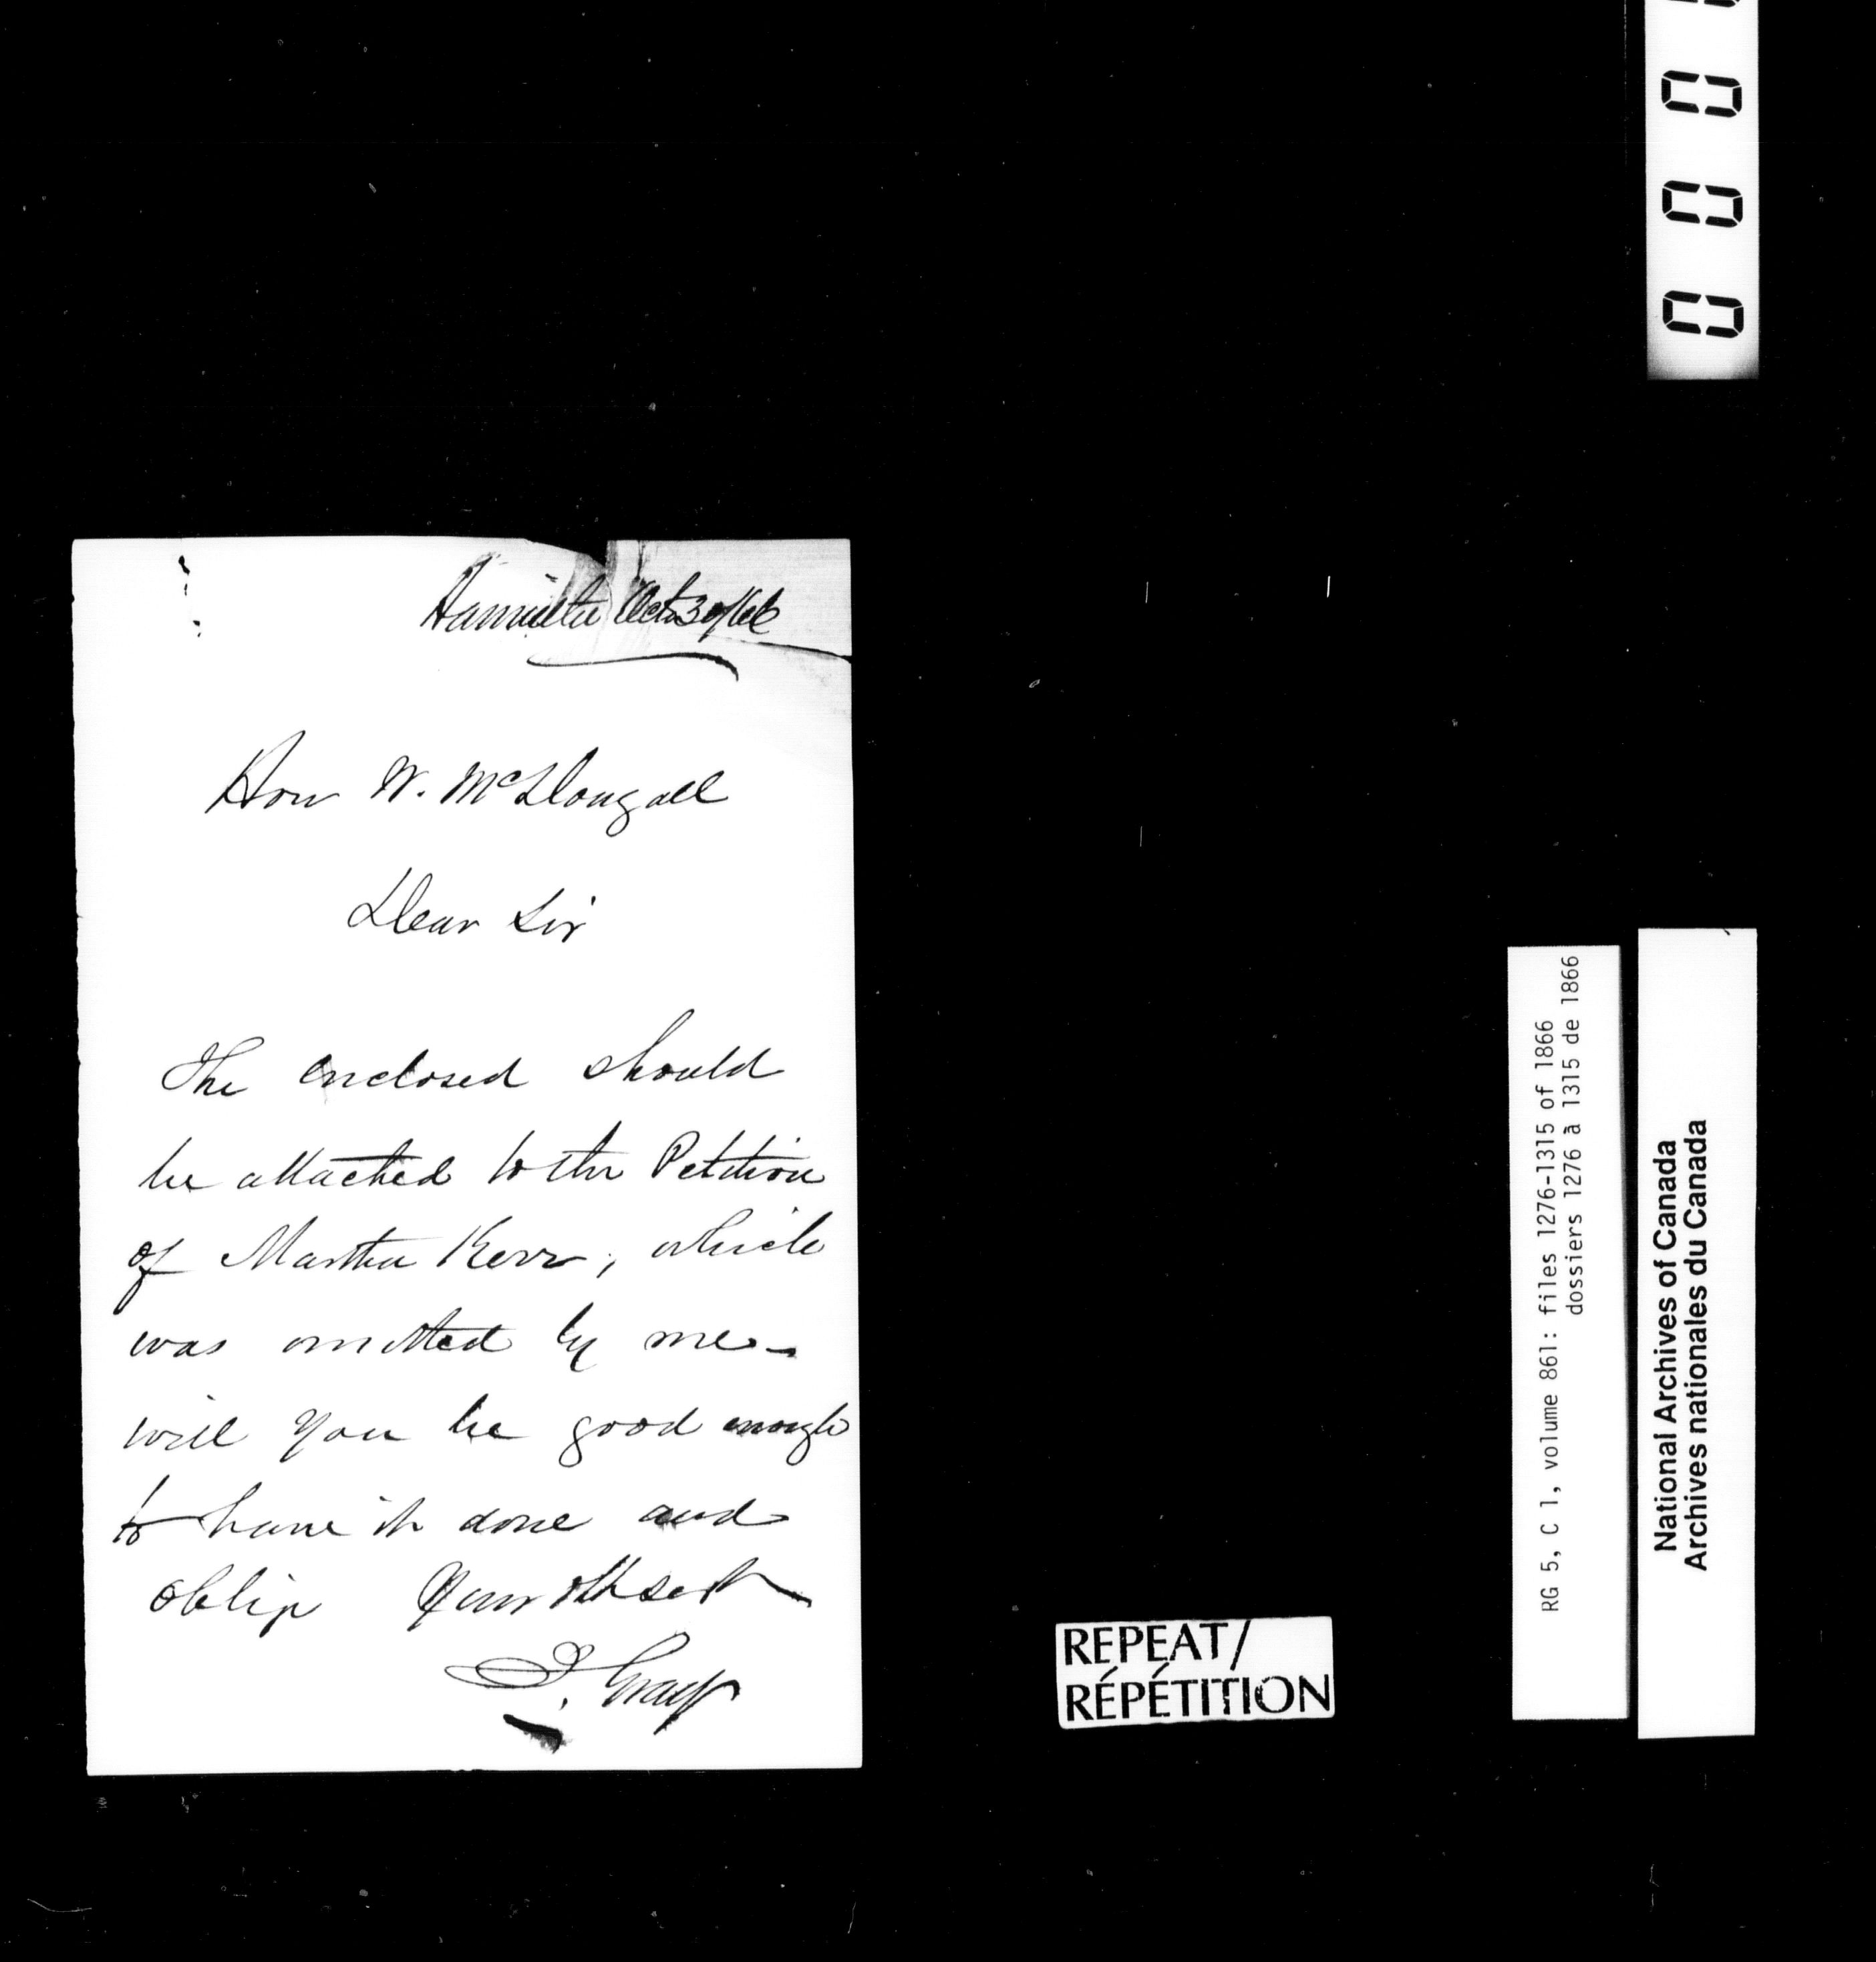 Hamilton Oct 30/66
Hon W. McDougall
Dear Sir
The enclosed should
be attached to the Petition
of Martha Kerr, which
was omitted by me -
will you be good enough
to have it done and
oblige Your Obt Sert
Gray
REPEAT/
RÉPÉTITION
RG 5, C 1, volume 861: files 1276-1315 of 1866
dossiers 1276 à 1315 de 1866
National Archives of Canada
Archives nationales du Canada
0 0 0